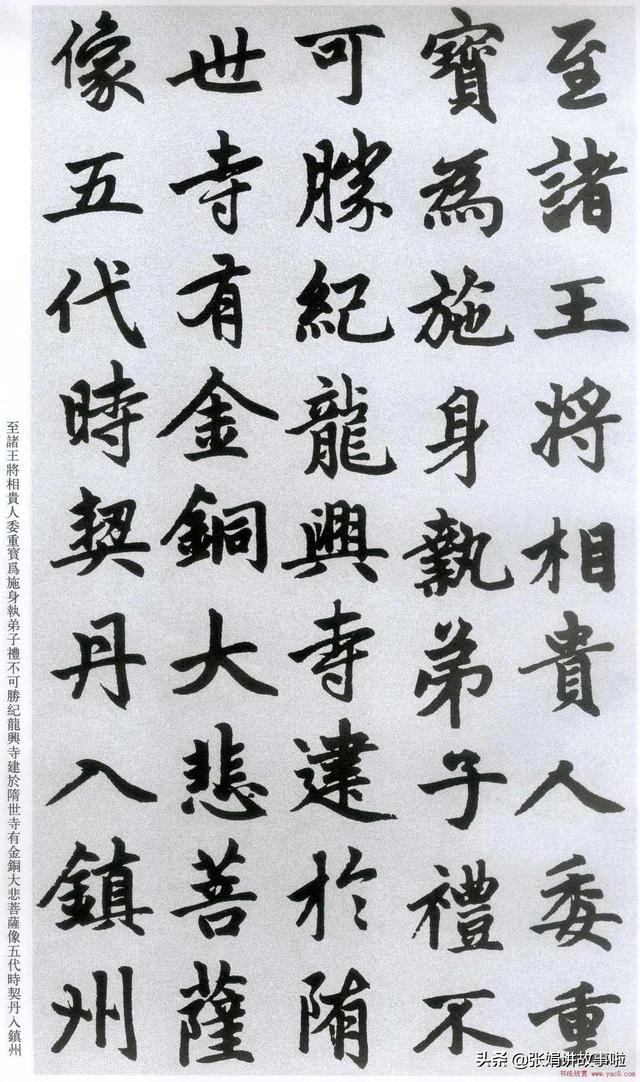 至諸王将相貴人委重
寶為施身執弟子禮不
可勝紀龍興寺建於隋
世寺有金銅大悲菩薩
像五代時契丹入鎮州
至諸王將相貴人委重寶爲施身執弟子禮不可勝紀龍興寺建於隋世寺有金銅大悲菩薩像五代時契丹入鎮州
头条 @张娟讲故事啦
书法欣赏 www.yac8.com